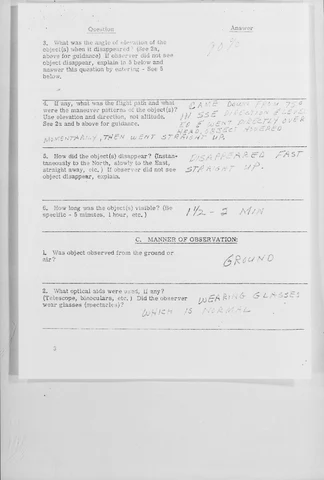 Question Answer
3. What was the angle of elevation of the
object(s) when it disappeared? (See 2a,
above for guidance) If observer did not see
object disappear, explain in 5 below and
answer this question by entering - See 5
below.
4. If any, what was the flight path and what
were the maneuver patterns of the object(s)?
Use elevation and direction, not altitude.
See 2a and b above for guidance.
CAME DOWN FROM
IN SSE DIRECTION PASSED
TO E WENT DIRECTLY OVER
HEAD, OBJECT HOVERED
MOMENTARILY, THEN WENT STRAIGHT UP.
5. How did the object(s) disappear? (Instan-
taneously to the North, slowly to the East,
straight away, etc.) If observer did not see
object disappear, explain.
DISAPPEARED FAST
STRAIGHT UP.
6. How long was the object(s) visible? (Be
specific - 5 minutes, 1 hour, etc.)
1½ - 2 MIN
C. MANNER OF OBSERVATION:
1. Was object observed from the ground or
air?
GROUND
2. What optical aids were used, if any?
(Telescope, binoculars, etc.) Did the observer
wear glasses (spectacles)?
WEARING GLASSES
WHICH IS NORMAL